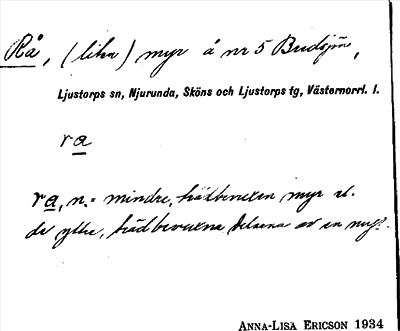 Rå, (lika) myr å nr 5 Bredsjön,
Ljustorps sn, Njurunda, Sköns och Ljustorps tg, Västernorrl. l.
ra
ra, n. = mindre, trädbevuxen myr el.
de yttre, trädbevuxna delarna av en myr.
ANNA-LISA ERICSON 1934